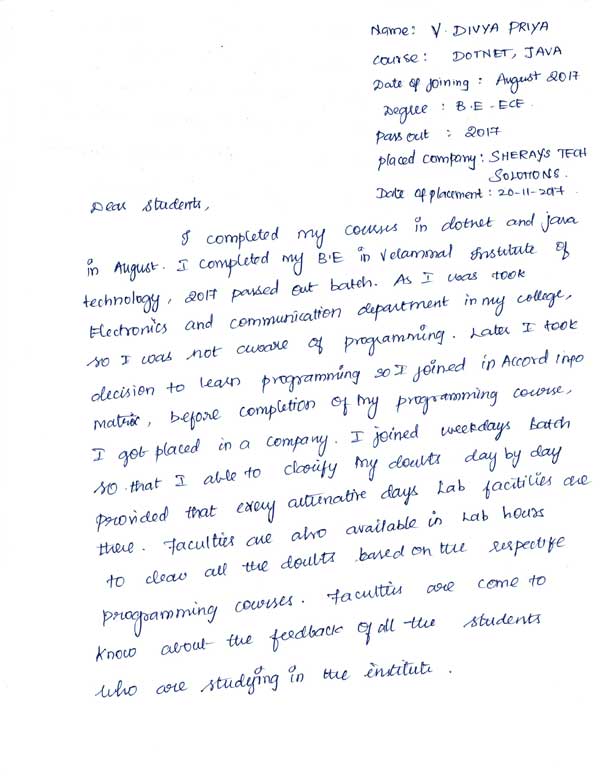 Name: V. DIVYA PRIYA
course: DOTNET, JAVA
Date of joining: August 2017
Degree: B.E-ECE.
Pass out: 2017
placed company: SHERAYS TECH
SOLUTIONS.
Date of placement: 20-11-2017.
Dear Students,
I completed my courses in dotnet and java
in August. I completed my B.E in Velammal Institute of
technology, 2017 passed out batch. As I was took
Electronics and communication department in my college,
so I was not aware of programming. Later I took
decision to learn programming so I joined in Accord info
matrix, before completion of my programming course,
I got placed in a company. I joined weekdays batch
so that I able to clarify my doubts day by day
provided that every alternative days Lab facitities are
there. Faculties are also available in Lab hours
to clear all the doubts based on the respective
programming courses. Faculties are come to
know about the feedback of all the students
who are studying in the institute.